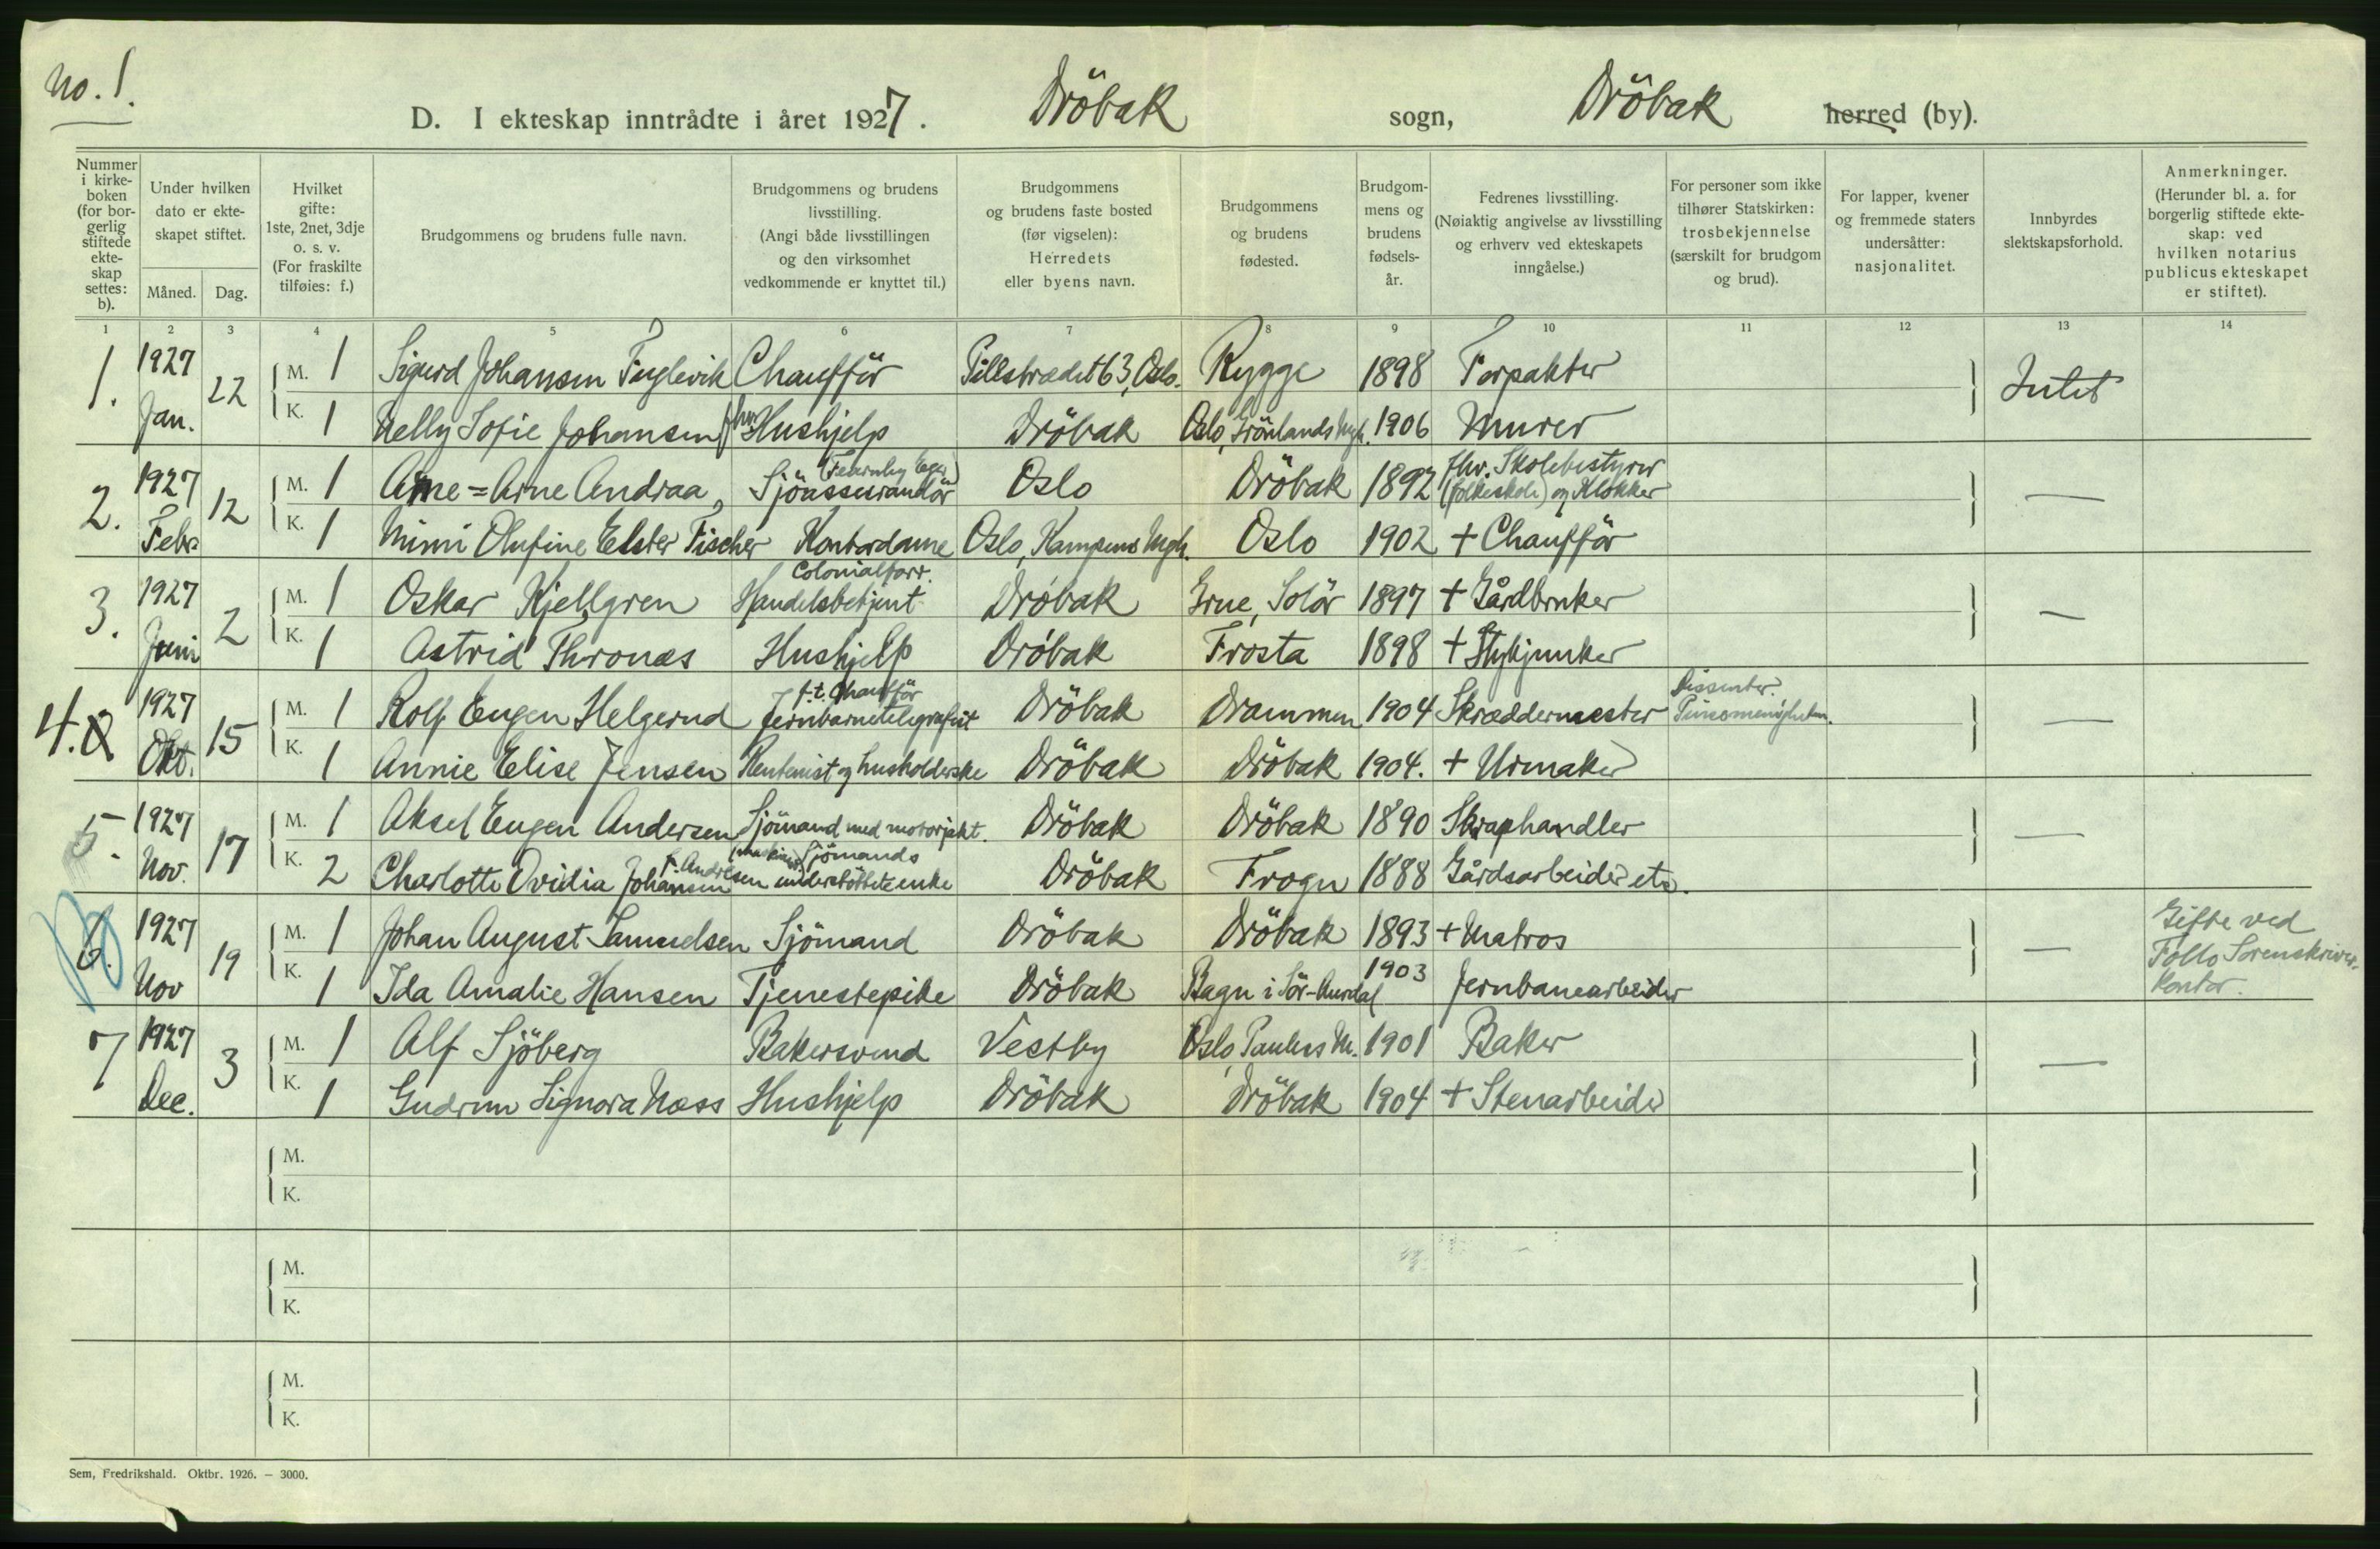 No. 1.
D. I ekteskap inntrådte i året 1927. Dröbak sogn, Dröbak herred (by).
Nummer i kirke-boken (for bor-gerlig stiftede ekte-skap settes: b).
Under hvilken dato er ekte-skapet stiftet.
Måned. Dag.
Hvilket gifte: 1ste, 2net, 3dje o. s. v. (For fraskilte tilføies: f.)
Brudgommens og brudens fulle navn.
Brudgommens og brudens livsstilling. (Angi både livsstillingen og den virksomhet vedkommende er knyttet til.)
Brudgommens og brudens faste bosted (før vigselen): Herredets eller byens navn.
Brudgommens og brudens fødested.
Brudgom-mens og brudens fødsels-år.
Fedrenes livsstilling. (Nøiaktig angivelse av livsstilling og erhverv ved ekteskapets inngåelse.)
For personer som ikke tilhører Statskirken: trosbekjennelse (særskilt for brudgom og brud).
For lapper, kvener og fremmede staters undersåtter: nasjonalitet.
Innbyrdes slektskapsforhold.
Anmerkninger. (Herunder bl. a. for borgerlig stiftede ekte-skap: ved hvilken notarius publicus ekteskapet er stiftet).
1 2 3 4 5 6 7 8 9 10 11 12 13 14
1. 1927 Jan. 22 M. 1 Sigurd Johansen Fuglevik Chaufför Pillestrædet 63, Oslo. Rygge 1898 Forpakter Intet
K. 1 Nelly Sofie Johansen fhv. Hushjelp Dröbak Oslo, Grönlands Mgh. 1906 Murer
2. 1927 Febr 12 M. 1 Arne = Arne Andraa, Sjöassurandör (Fearnley Eger) Oslo Dröbak 1892 fhv. Skolebestyrer (folkeskole) og Klokker —
K. 1 Mimi Olufine Elster Fischer Kontordame Oslo, Kampens Mgh. Oslo 1902 + Chaufför
3. 1927 Juni 2 M. 1 Oskar Kjellgren Colonialforr. Handelsbetjent Dröbak Grue, Solör 1897 + Gårdbruker —
K. 1 Astrid Thronæs Hushjelp Dröbak Frosta 1898 + Stykjunker
4. 1927 Okt. 15 M. 1 Rolf Eugen Helgerud f. t. Chaufför Jernbanetelegrafist Dröbak Drammen 1904 Skræddermester Dissenter. Pinsemenigheten. —
K. 1 Annie Elise Jensen Rentenist og husholderske Dröbak Dröbak 1904. + Urmaker
5. 1927 Nov. 17 M. 1 Aksel Eugen Andersen Sjömand med motorjakt. Dröbak Dröbak 1890 Skraphandler —
K. 2 Charlotte Ovidia Johansen f. Andresen Sjömands understöttet enke Dröbak Frogn 1888 Gårdsarbeider etc.
6. B 1927 Nov 19 M. 1 Johan August Samuelsen Sjömand Dröbak Dröbak 1893 + Matros — Gifte ved Follo Sorenskriver-kontor.
K. 1 Ida Amalie Hansen Tjenestepike Dröbak Bagn i Sör-Aurdal 1903 Jernbanearbeider
7 1927 Dec. 3 M. 1 Alf Sjöberg Bakersvend Vestby Oslo, Paulus M. 1901 Baker —
K. 1 Gudrun Signora Næss Hushjelp Dröbak Dröbak 1904 + Stenarbeider
M.
K.
M.
K.
M.
K.
Sem, Fredrikshald. Oktbr. 1926. — 3000.